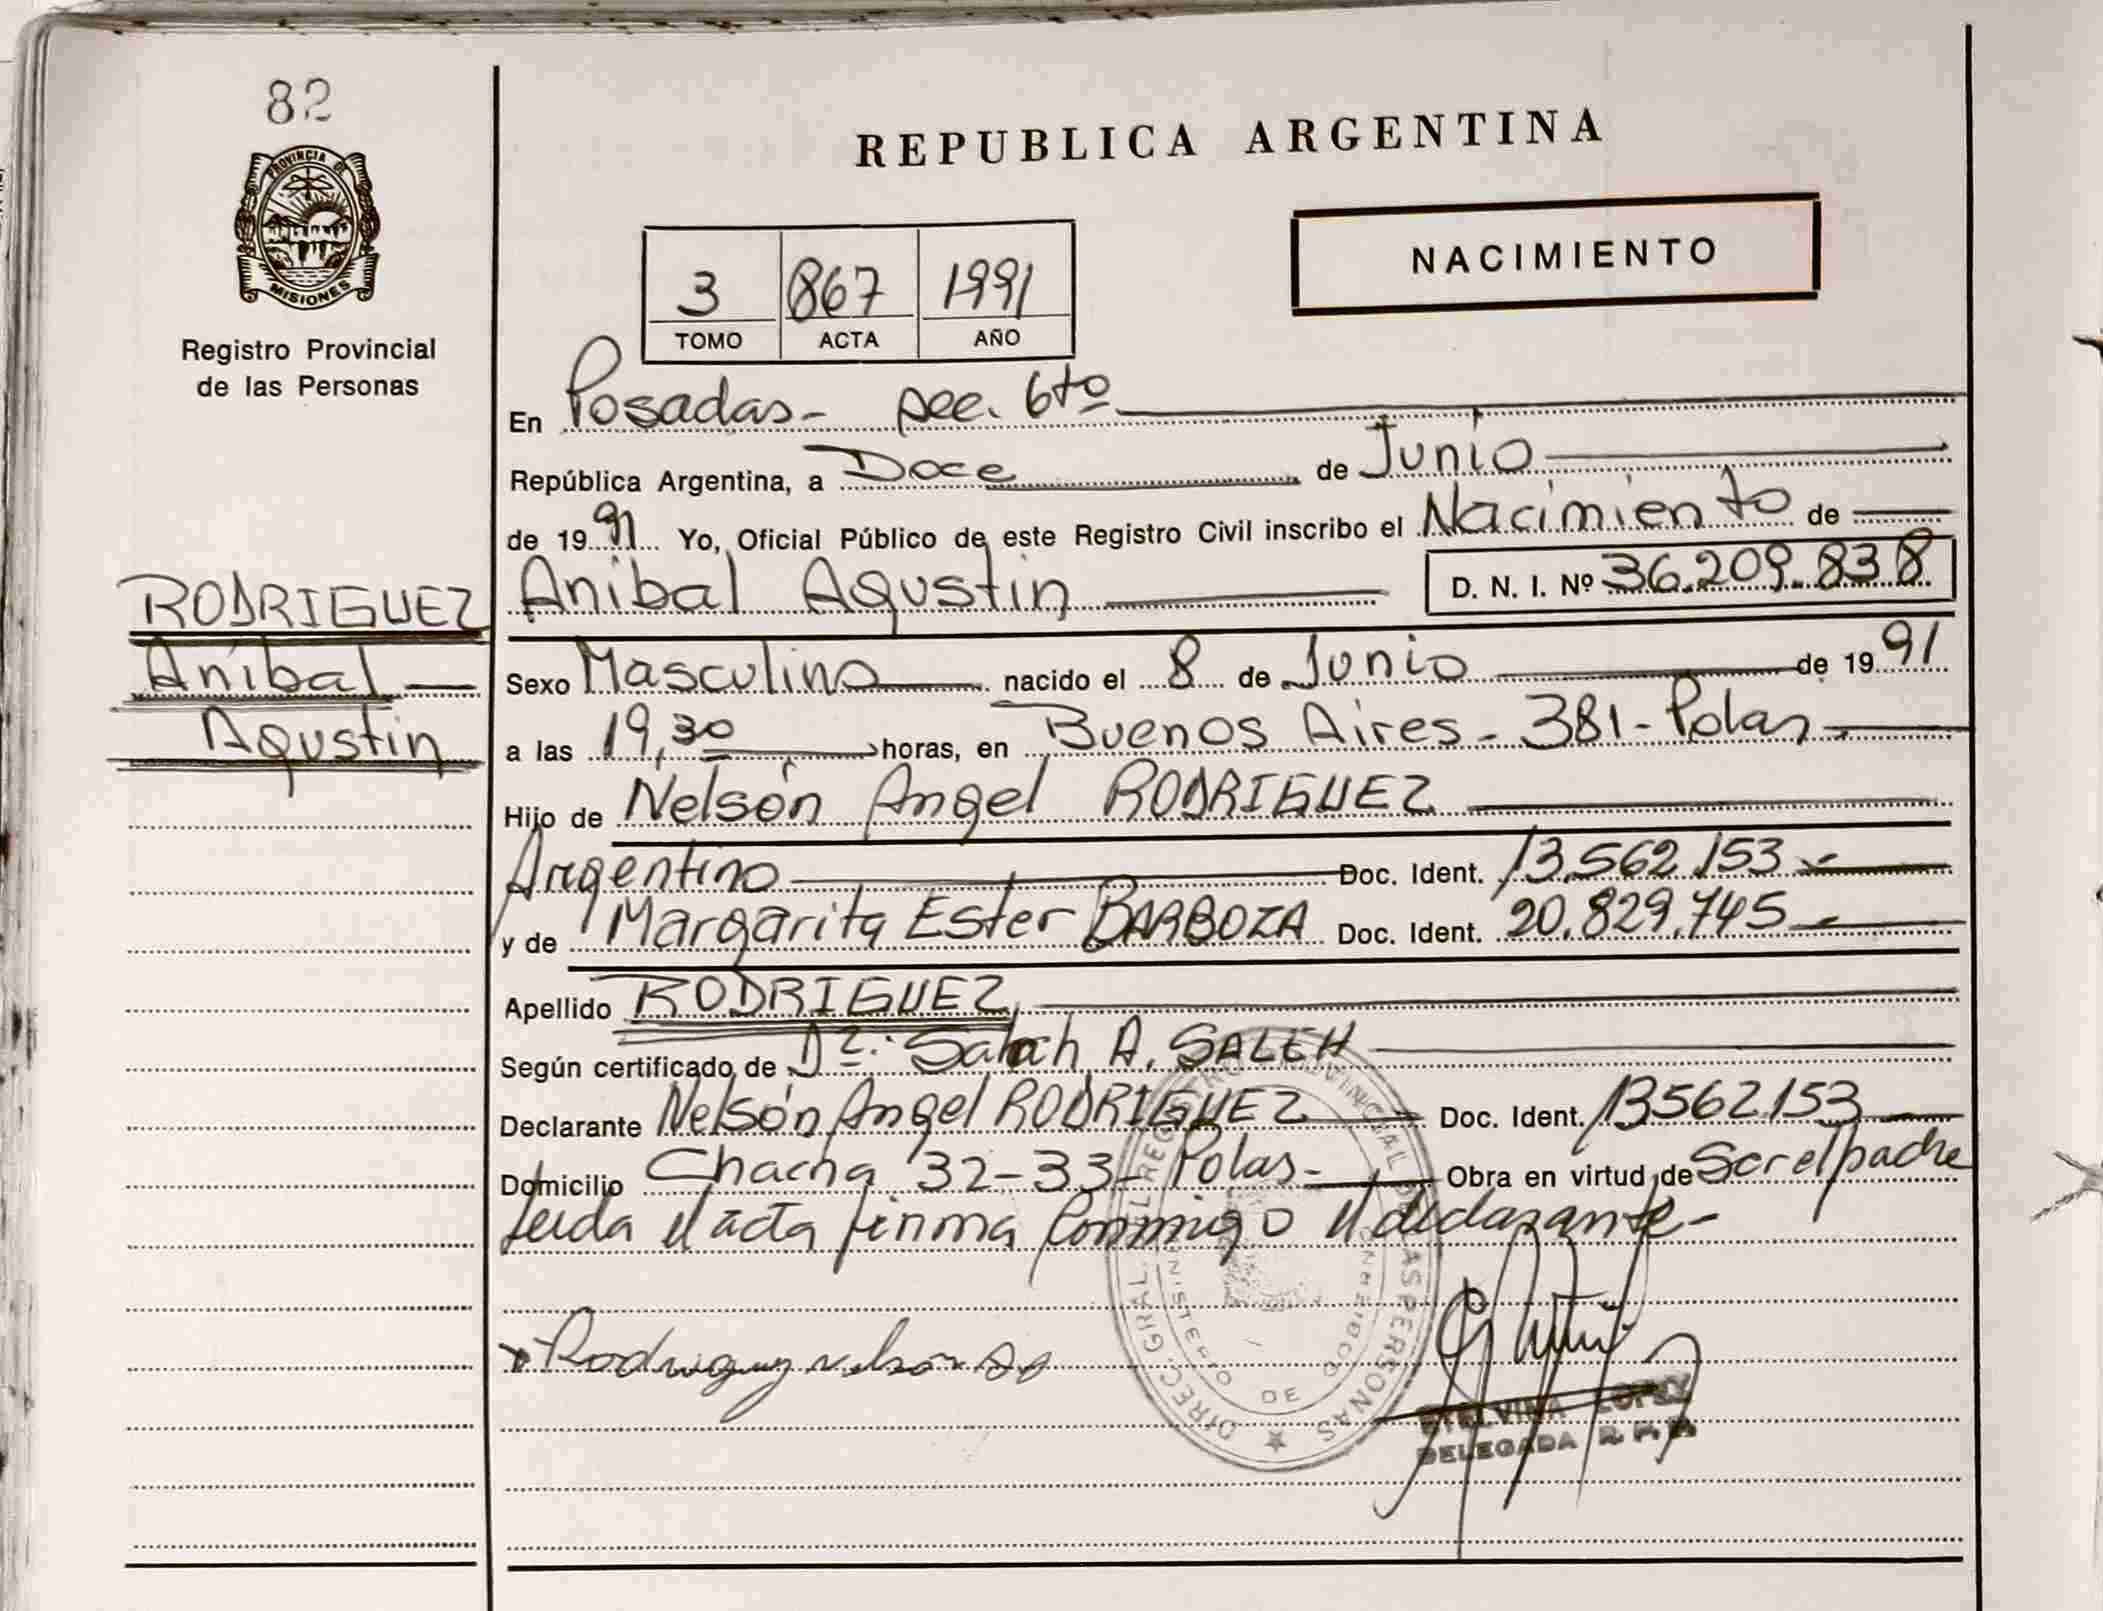 82
PROVINCIA DE
MISIONES
Registro Provincial
de las Personas
RODRIGUEZ
Aníbal
Agustin
REPUBLICA ARGENTINA
NACIMIENTO
3 867 1991
TOMO ACTA AÑO
En Posadas - sec. 6to
República Argentina, a Doce de Junio
de 19 91 Yo, Oficial Público de este Registro Civil inscribo el Nacimiento de
Aníbal Agustin D. N. I. Nº 36.209.838
Sexo Masculino nacido el 8 de Junio de 19 91
a las 19,30 horas, en Buenos Aires - 381 - Pdas
Hijo de Nelsón Angel RODRIGUEZ
Argentino Doc. Ident. 13.562.153
y de Margarita Ester BARBOZA Doc. Ident. 20.829.745
Apellido RODRIGUEZ
Según certificado de Dr. A. SALEH
Declarante Nelsón Angel RODRIGUEZ Doc. Ident. 13562153
Domicilio Chacra 32-33 - Pdas - Obra en virtud de Ser el padre
Leida el acta firma conmigo el declarante -
Rodriguez Nelson
DIREC. GRAL. DEL REGISTRO PROVINCIAL DE LAS PERSONAS
MINISTERIO DE GOBIERNO
ETELVINA LOPEZ
DELEGADA R. P. P.